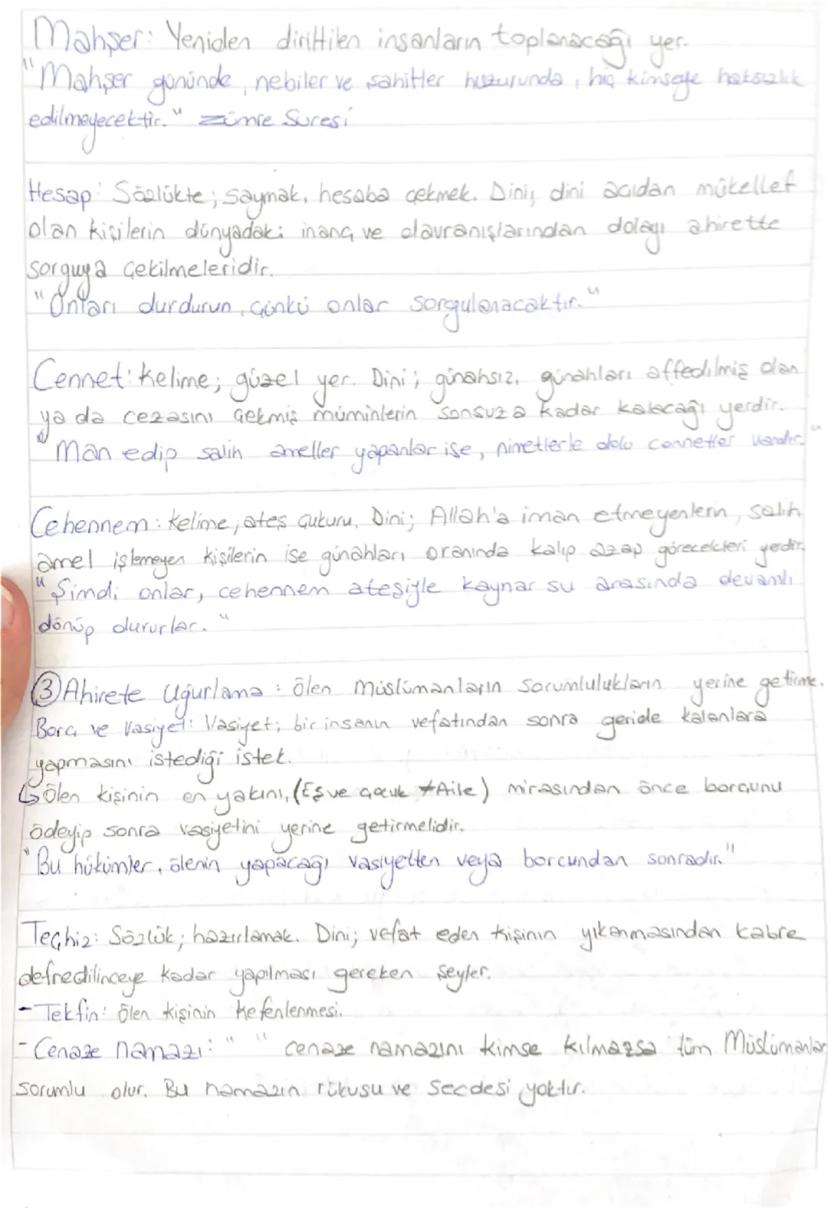 Mahşer: Yeniden dirittilen insanların toplanacağı yer.
"Mahşer gününde, nebiler ve şahitler huzurunda, hiç kimseye haksızlık
edilmeyecektir." Zümre Suresi
Hesap: Sözlükte; saymak, hesaba çekmek. Dini; dini açıdan mükellef
olan kişilerin dünyadaki inanç ve davranışlarından dolayı ahirette
sorguya çekilmeleridir.
"Onları durdurun, çünkü onlar sorgulanacaktır."
Cennet: Kelime; güzel yer. Dini; günahsız, günahları affedilmiş olan
ya da cezasını çekmiş müminlerin sonsuza kadar kalacağı yerdir.
"İman edip salih ameller yapanlar ise, nimetlerle dolu cennetler vardır."
Cehennem: Kelime; ateş çukuru. Dini; Allah'a iman etmeyenlerin, salih
amel işlemeyen kişilerin ise günahları oranında kalıp azap görecekleri yerdir.
"Şimdi onlar, cehennem ateşiyle kaynar su arasında devamlı
dönüp dururlar."
③ Ahirete Uğurlama: Ölen Müslümanların sorumlulukların yerine getirme.
Borç ve Vasiyet: Vasiyet; bir insanın vefatından sonra geride kalanlara
yapmasını istediği istek.
↳ Ölen kişinin en yakını, (Eş ve çocuk ≠ Aile) mirasından önce borcunu
ödeyip sonra vasiyetini yerine getirmelidir.
"Bu hükümler, ölenin yapacağı vasiyetten veya borcundan sonradır."
Teçhiz: Sözlük; hazırlamak. Dini; vefat eden kişinin yıkanmasından kabre
defnedilinceye kadar yapılması gereken şeyler.
- Tekfin: Ölen kişinin kefenlenmesi.
- Cenaze namazı: " " cenaze namazını kimse kılmazsa tüm Müslümanlar
sorumlu olur. Bu namazın rükusu ve secdesi yoktur.